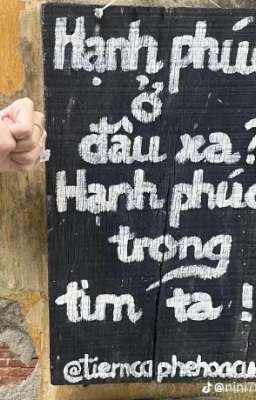 Hạnh phúc
ở
đâu xa?
Hạnh phúc
trong
tim ta!
@tiemcaphehoacu